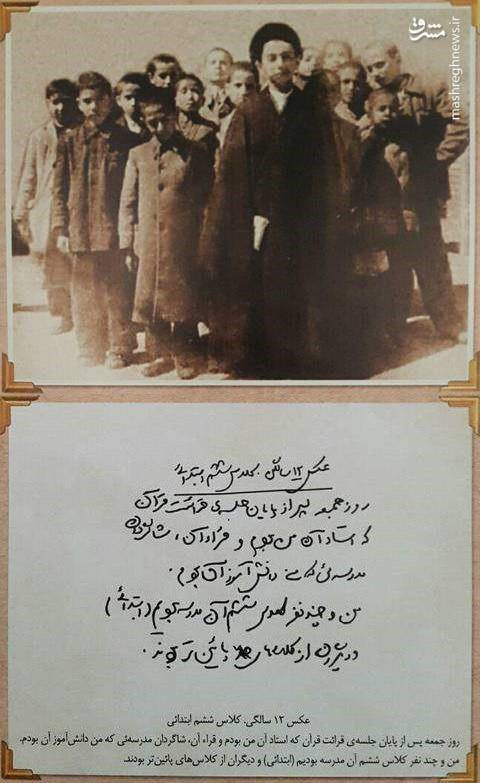 مشرق
mashreghnews.ir
عکس ۱۲ سالگی. کلاس ششم ابتدائی
روز جمعه پس از پایان جلسه‌ی قرائت قرآن
که استاد آن من بودم و قراء آن، شاگردان
مدرسه‌ئی که من دانش‌آموز آن بودم.
من و چند نفر کلاس ششم آن مدرسه بودیم (ابتدائی)
و دیگران از کلاسهای پائین‌تر بودند.
عکس ۱۲ سالگی. کلاس ششم ابتدائی
روز جمعه پس از پایان جلسه‌ی قرائت قرآن که استاد آن من بودم و قراء آن، شاگردان مدرسه‌ئی که من دانش‌آموز آن بودم.
من و چند نفر کلاس ششم آن مدرسه بودیم (ابتدائی) و دیگران از کلاس‌های پائین‌تر بودند.